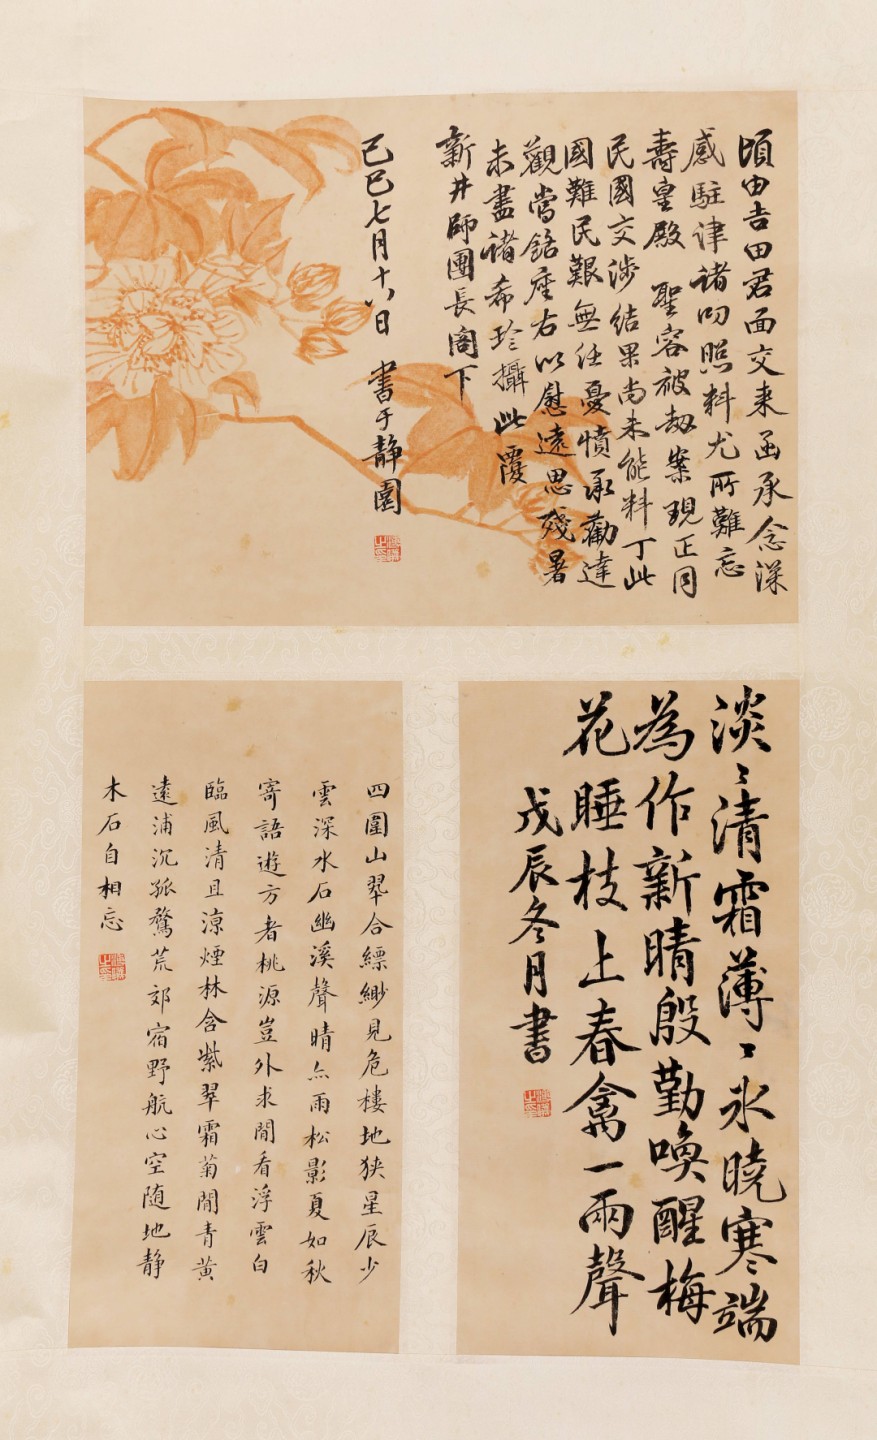 頃由吉田君面交来函承念深
感駐津諸叨照料尤所難忘
壽皇殿 聖容被劫案現正同
民國交涉結果尚未能料丁此
國難民艱無任憂憤承勸達
觀當銘座右以慰遠思殘暑
未盡諸希珍攝此覆
新井師團長閣下
己巳七月十八日 書于静園
淡〻清霜薄〻氷曉寒端
為作新晴殷勤喚醒梅
花睡枝上春禽一兩聲
戊辰冬月書
四圍山翠合縹緲見危樓地狹星辰少
雲深水石幽溪聲晴亦雨松影夏如秋
寄語遊方者桃源豈外求閒看浮雲白
臨風清且涼煙林含紫翠霜菊閒青黄
遠浦沉孤鶩荒郊宿野航心空随地静
木石自相忘